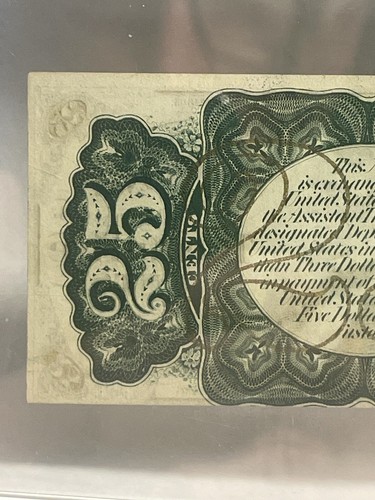 25
25
25
CENTS
This
is exchang
United State
the Assistant T
designated Dep
United States in
than Three Dolla
in payment of
United Stat
Five Dolla
Custo